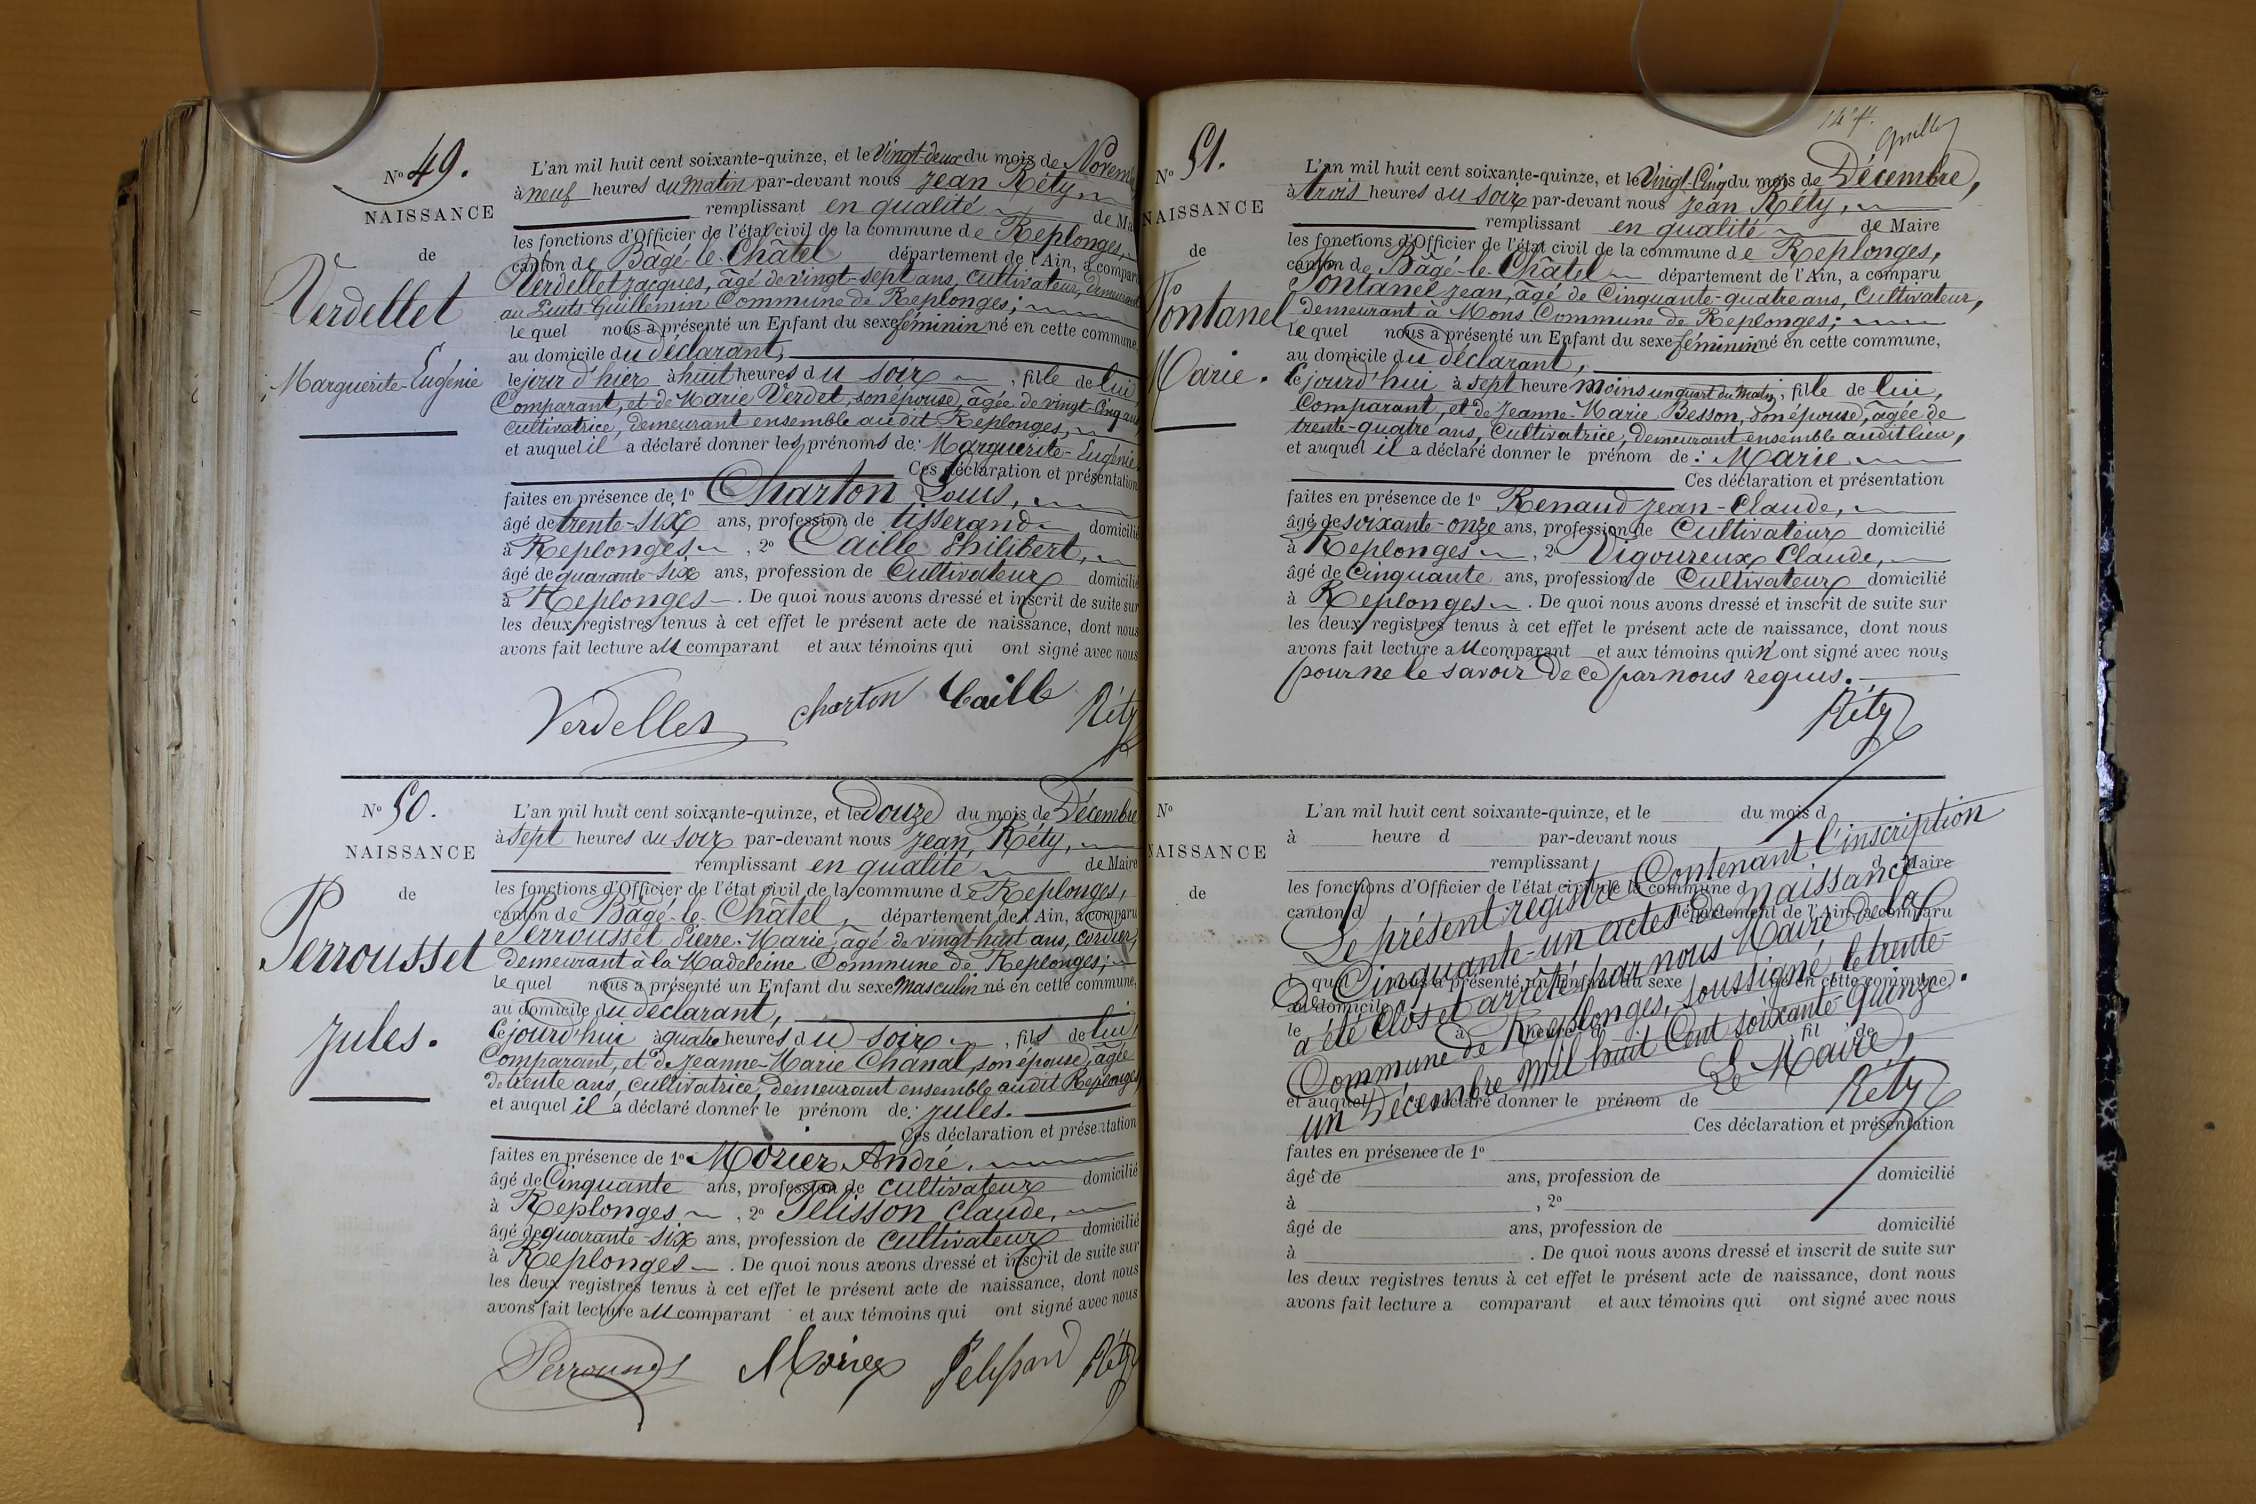 N° 49.
NAISSANCE
de
Verdellet
Marguerite-Eugénie
L'an mil huit cent soixante-quinze, et le Vingt-deux du mois de Novem
à neuf heures du matin par-devant nous Jean Réty,
remplissant en qualité de Ma
les fonctions d'Officier de l'état civil de la commune de Replonges,
canton de Bâgé-le-Châtel département de l'Ain, a compar
Verdellet Jacques, âgé de vingt-sept ans, cultivateur, demeurant
au Puits Guillemin Commune de Replonges;
le quel nous a présenté un Enfant du sexe féminin né en cette commune,
au domicile du déclarant,
le jour d'hier à huit heures du soir, fille de lui
Comparant, et de Marie Verdet, son épouse, âgée de vingt-cinq ans
cultivatrice, demeurant ensemble audit Replonges,
et auquel il a déclaré donner les prénoms de: Marguerite-Eugénie
Ces déclaration et présentation
faites en présence de 1° Charton Louis,
âgé de trente-six ans, profession de tisserand domicilié
à Replonges, 2° Caille Philibert,
âgé de quarante-six ans, profession de Cultivateur domicilié
à Replonges. De quoi nous avons dressé et inscrit de suite sur
les deux registres tenus à cet effet le présent acte de naissance, dont nous
avons fait lecture au comparant et aux témoins qui ont signé avec nous
Verdellet Charton Caille Réty
N° 50.
NAISSANCE
de
Perrousset
Jules.
L'an mil huit cent soixante-quinze, et le douze du mois de Décembre
à sept heures du soir par-devant nous Jean Réty,
remplissant en qualité de Maire
les fonctions d'Officier de l'état civil de la commune de Replonges,
canton de Bâgé-le-Châtel, département de l'Ain, a comparu
Perrousset Pierre-Marie, âgé de vingt huit ans, cordier,
demeurant à la Madeleine Commune de Replonges;
le quel nous a présenté un Enfant du sexe Masculin né en cette commune,
au domicile du déclarant,
le jourd'hui à quatre heures du soir, fils de lui
Comparant, et de Jeanne-Marie Chanal, son épouse, âgée
de trente ans, cultivatrice, demeurant ensemble audit Replonges
et auquel il a déclaré donner le prénom de: Jules.
Ces déclaration et présentation
faites en présence de 1° Morier André,
âgé de Cinquante ans, profession de cultivateur domicilié
à Replonges, 2° Pélisson Claude,
âgé de quarante-six ans, profession de cultivateur domicilié
à Replonges. De quoi nous avons dressé et inscrit de suite sur
les deux registres tenus à cet effet le présent acte de naissance, dont nous
avons fait lecture au comparant et aux témoins qui ont signé avec nous
Morier Réty
N° 51.
NAISSANCE
de
Fontanel
Marie.
L'an mil huit cent soixante-quinze, et le Vingt-Cinq du mois de Décembre,
à trois heures du soir par-devant nous Jean Réty,
remplissant en qualité de Maire
les fonctions d'Officier de l'état civil de la commune de Replonges,
canton de Bâgé-le-Châtel département de l'Ain, a comparu
Fontanel Jean, âgé de Cinquante-quatre ans, Cultivateur,
demeurant à Mons Commune de Replonges;
le quel nous a présenté un Enfant du sexe féminin né en cette commune,
au domicile du déclarant,
le jourd'hui à sept heure moins un quart du matin, fille de lui,
Comparant, et de Jeanne-Marie Besson, son épouse, âgée de
trente-quatre ans, Cultivatrice, demeurant ensemble audit lieu,
et auquel il a déclaré donner le prénom de: Marie
Ces déclaration et présentation
faites en présence de 1° Renaud Jean-Claude,
âgé de soixante-onze ans, profession de Cultivateur domicilié
à Replonges, 2° Vigoureux Claude,
âgé de Cinquante ans, profession de Cultivateur domicilié
à Replonges. De quoi nous avons dressé et inscrit de suite sur
les deux registres tenus à cet effet le présent acte de naissance, dont nous
avons fait lecture au comparant et aux témoins qui n'ont signé avec nous
pour ne le savoir de ce par nous requis.
Réty
N°
NAISSANCE
de
L'an mil huit cent soixante-quinze, et le du mois d
à heure d par-devant nous
remplissant d Maire
les fonctions d'Officier de l'état civil de la commune d
canton d département de l'Ain, a comparu
quel nous a présenté un Enfant du sexe né en cette commune,
au domicile
le à heure d fil de
et auquel a déclaré donner le prénom de
Ces déclaration et présentation
faites en présence de 1°
âgé de ans, profession de domicilié
à , 2°
âgé de ans, profession de domicilié
à . De quoi nous avons dressé et inscrit de suite sur
les deux registres tenus à cet effet le présent acte de naissance, dont nous
avons fait lecture a comparant et aux témoins qui ont signé avec nous
Le présent registre Contenant l'inscription
de Cinquante-un actes de naissance
a été clos et arrêté par nous Maire de la
Commune de Replonges, soussigné le trente-
un Décembre mil huit Cent soixante-quinze.
Le Maire,
Réty